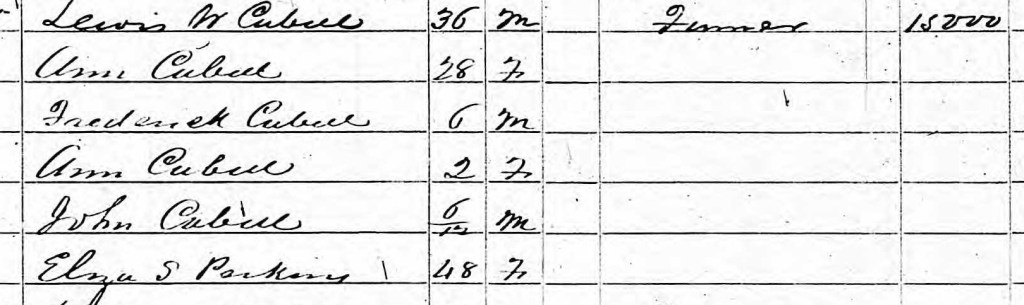 Lewis W Cubell 36 M Farmer 15000
Ann Cubell 28 F
Frederick Cubell 6 M
Ann Cubell 2 F
John Cubell 6/12 M
Eliza S Perkins 48 F